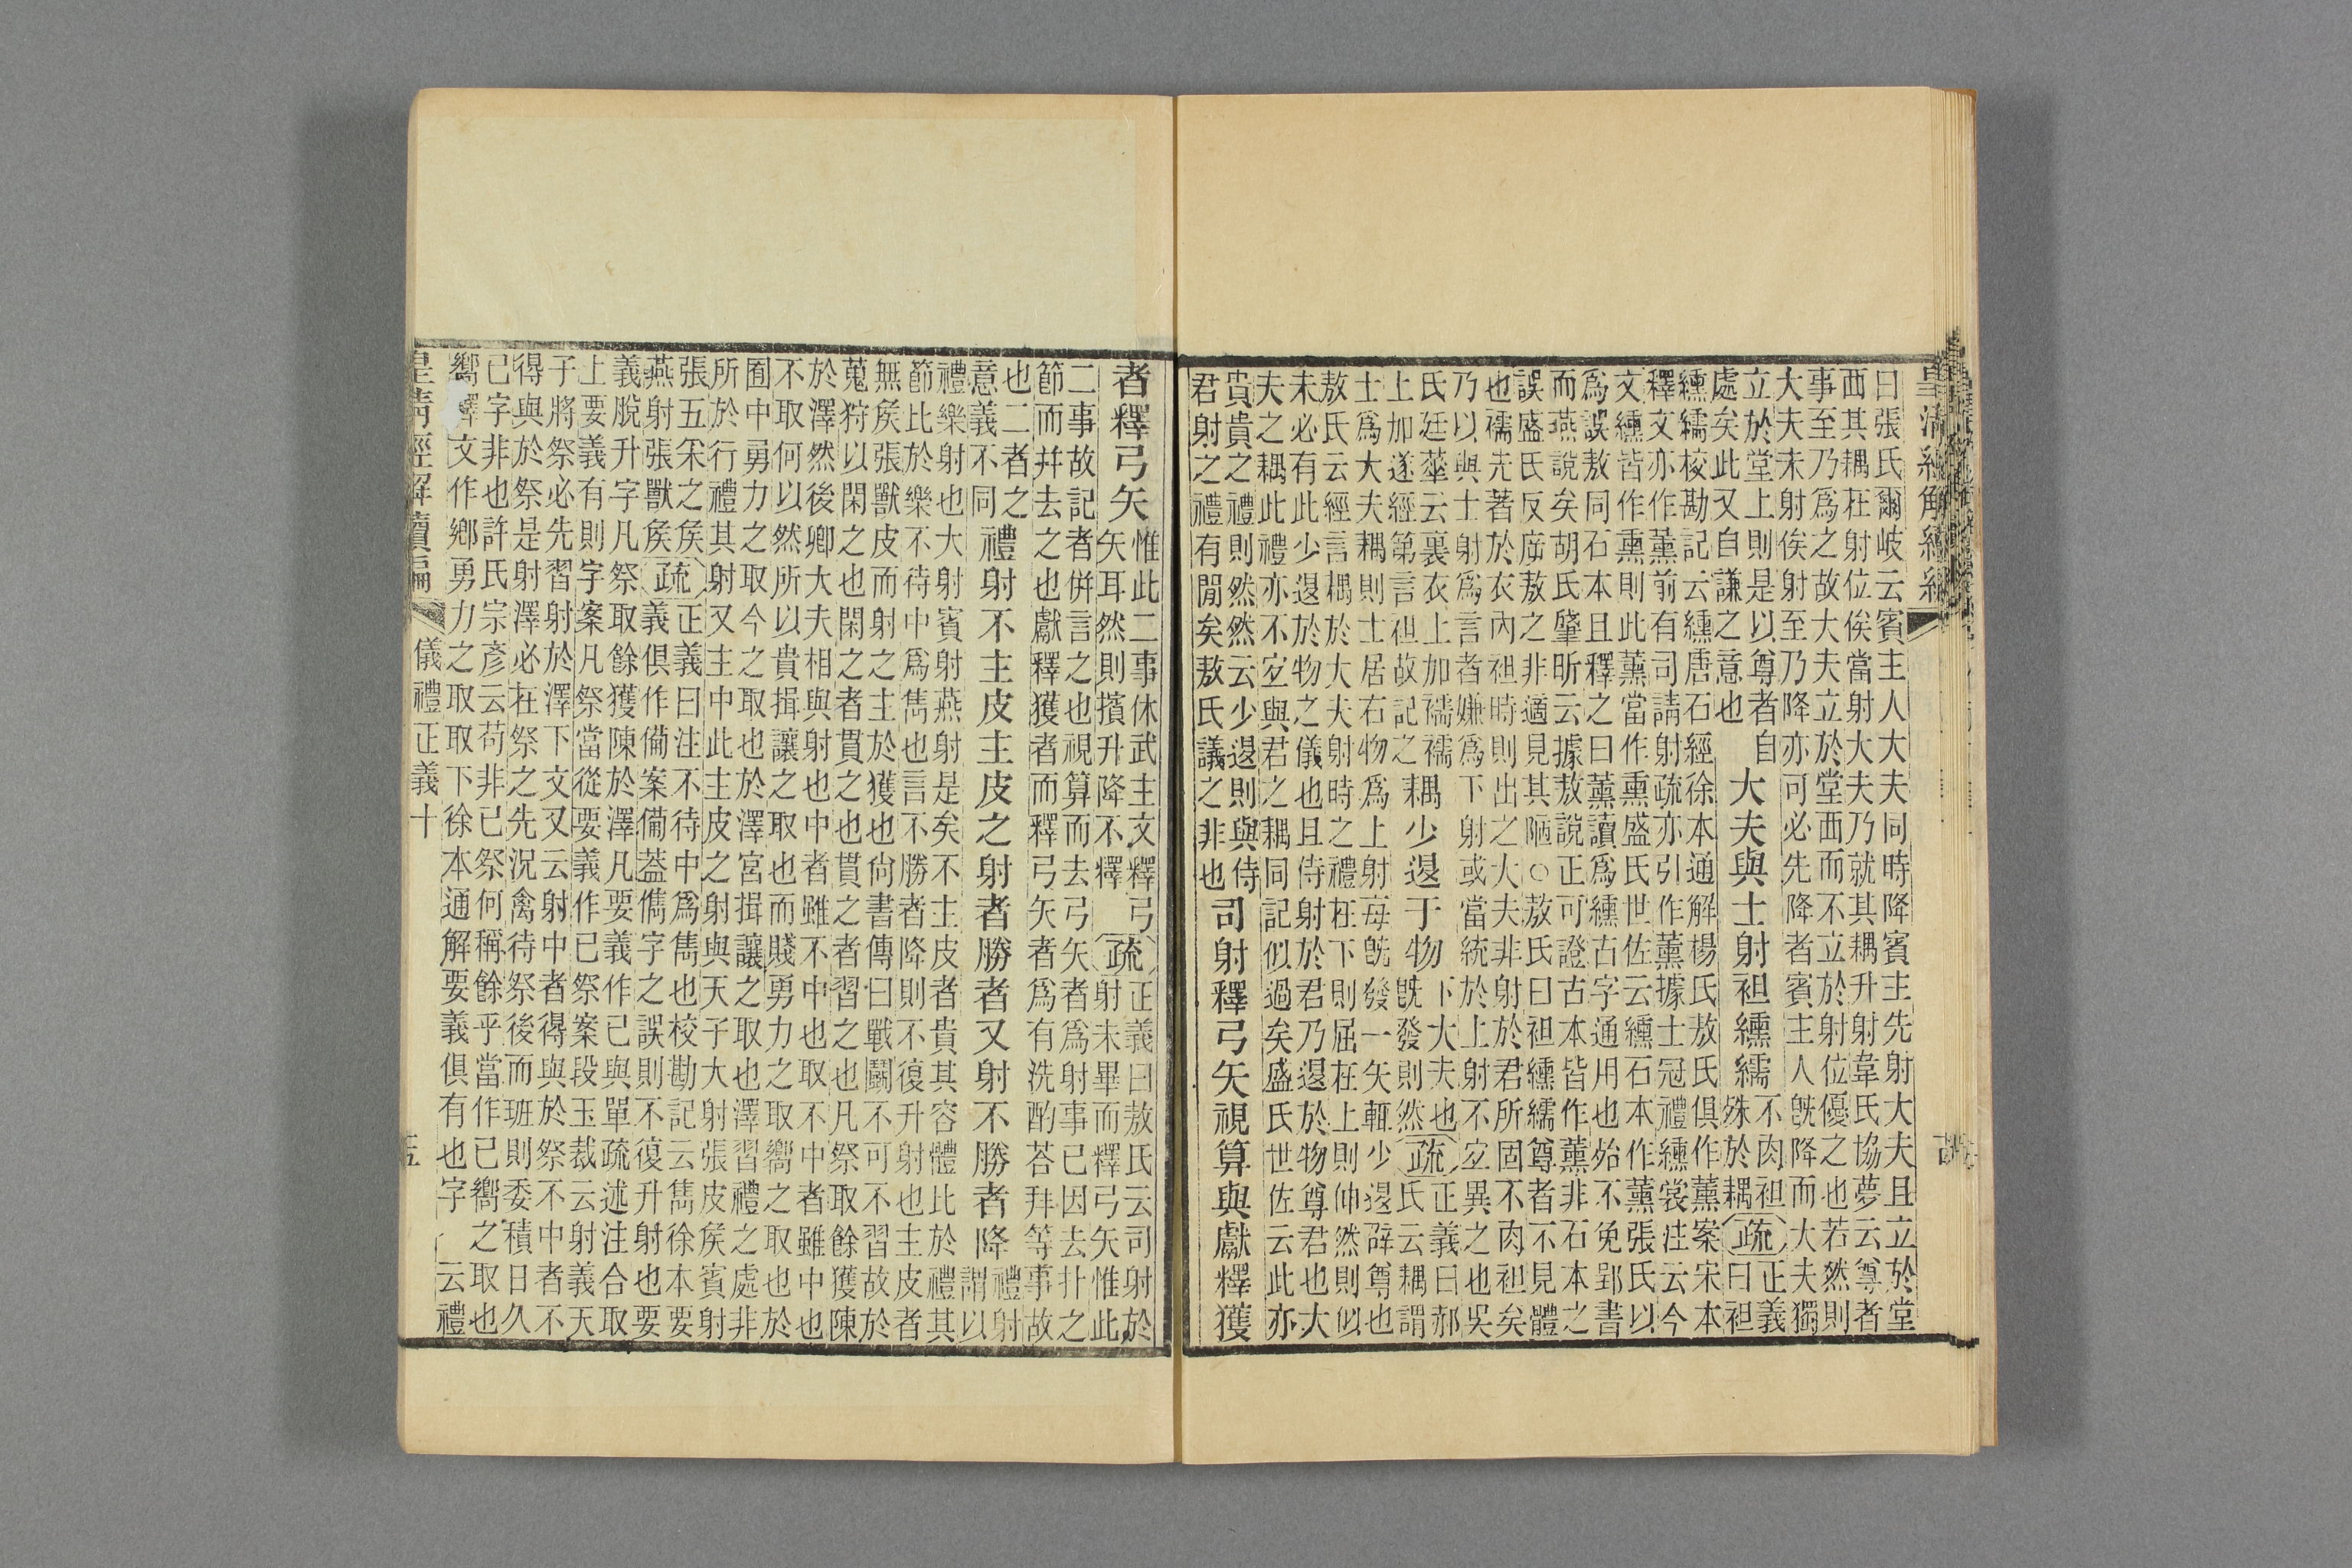 皇清經解續編
曰張氏爾岐云賓主人大夫同時降賓主先射大夫且立於堂
西其耦在射位俟當射大夫乃就其耦升射韋氏協夢云尊者
事至乃爲之故大夫立於堂西而不立於射位優之也若然則
大夫未射俟射至乃降亦可必先降者賓主人旣降而大夫獨
立於堂上則是以尊者自
處矣此又自謙之意也
大夫與士射袒纁襦
不肉袒
殊於耦
疏
正義
曰袒
纁襦校勘記云纁唐石經徐本通解楊氏敖氏俱作薰案宋本
釋文亦作薰前有司請射疏亦引作薰據士冠禮纁裳注云今
文纁皆作熏則此薰當作熏盛氏世佐云纁石本作薰張氏以
爲誤敖同石本且釋之曰薰讀爲纁古字通用也始不免郢書
而燕說矣胡氏肇昕云據敖說正可證古本皆作薰非石本之
誤盛氏反斥敖之非適見其陋○敖氏曰袒纁襦尊者不見體
也襦先著於衣內袒時則出之大夫非射於君所固不肉袒矣
乃以與士射爲言者嫌爲下射或當統於上射不宐異之也吳
氏廷華云裏衣上加襦襦
上加遂經第言袒故記之
耦少退于物
下大夫也
旣發則然
疏
正義曰郝
氏云耦謂
士爲大夫耦則士居右物爲上射每旣發一矢輒少退辟尊也
敖氏云經言耦於大夫射時之禮在下則屈在上則伸然則似
未必有此少退於物之儀也且侍射於君乃退於物尊君也大
夫之耦此禮亦不宐與君之耦同記似過矣盛氏世佐云此亦
貴貴之禮則然然云少退則與侍
君射之禮有閒矣敖氏議之非也
司射釋弓矢視算與獻釋獲
者釋弓矢
惟此二事休武主文釋弓
矢耳然則擯升降不釋
疏
正義曰敖氏云司射於
射未畢而釋弓矢惟此
二事故記者併言之也視算而去弓矢者爲射事已因去扑之
節而幷去之也獻釋獲者而釋弓矢者爲有洗酌荅拜等事故
也二者之
意義不同
禮射不主皮主皮之射者勝者又射不勝者降
禮射
謂以
禮樂射也大射賓射燕射是矣不主皮者貴其容體比於禮其
節比於樂不待中爲雋也言不勝者降則不復升射也主皮者
無矦張獸皮而射之主於獲也尙書傳曰戰鬭不可不習故於
蒐狩以閑之也閑之者貫之也貫之者習之也凡祭取餘獲陳
於澤然後卿大夫相與射也中者雖不中也取不中者雖中也
不取何以然所以貴揖讓之取也而賤勇力之取嚮之取也於
囿中勇力之取今之取也於澤宮揖讓之取也澤習禮之處非
所於行禮其射又主中此主皮之射與天子大射張皮矦賓射
張五采之矦
燕射張獸矦
疏
正義曰注不待中爲雋也校勘記云雋徐本要
義俱作備案備葢儁字之誤則不復升射也要
義脫升字凡祭取餘獲陳於澤凡要義作已與單疏述注合取
上要義有則字案凡祭當從要義作已祭案段玉裁云射義天
子將祭必先習射於澤下文又云射中者得與於祭不中者不
得與於祭是射澤必在祭之先況禽待祭後而班則委積日久
已字非也許氏宗彥云苟非已祭何稱餘乎當作已嚮之取也
嚮釋文作鄉勇力之取取下徐本通解要義俱有也字 云禮
皇清經解續編 儀禮正義十 五